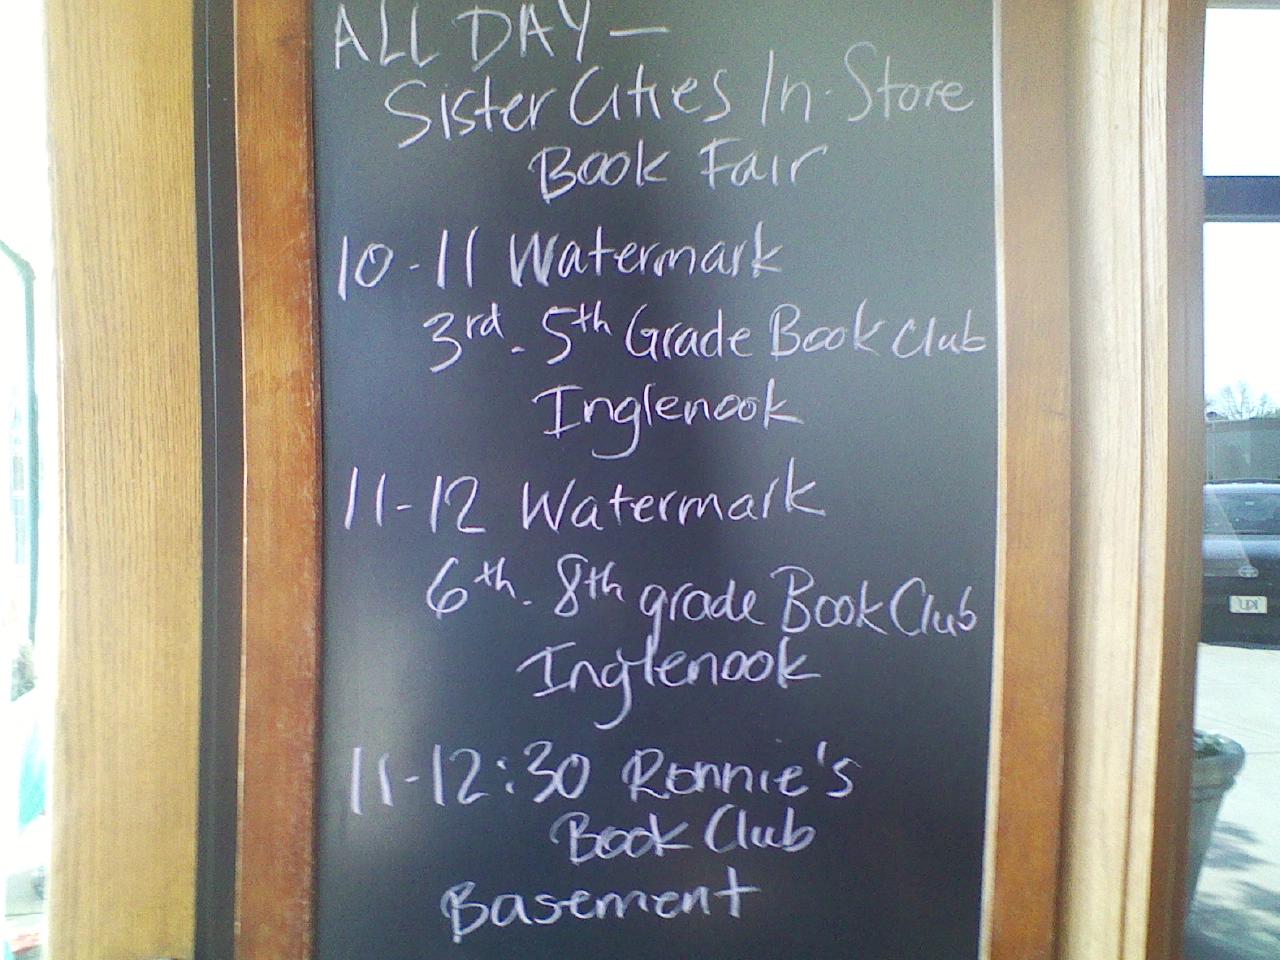 ALL DAY —
Sister Cities In-Store
Book Fair
10-11 Watermark
3rd-5th Grade Book Club
Inglenook
11-12 Watermark
6th-8th grade Book Club
Inglenook
11-12:30 Ronnie's
Book Club
Basement